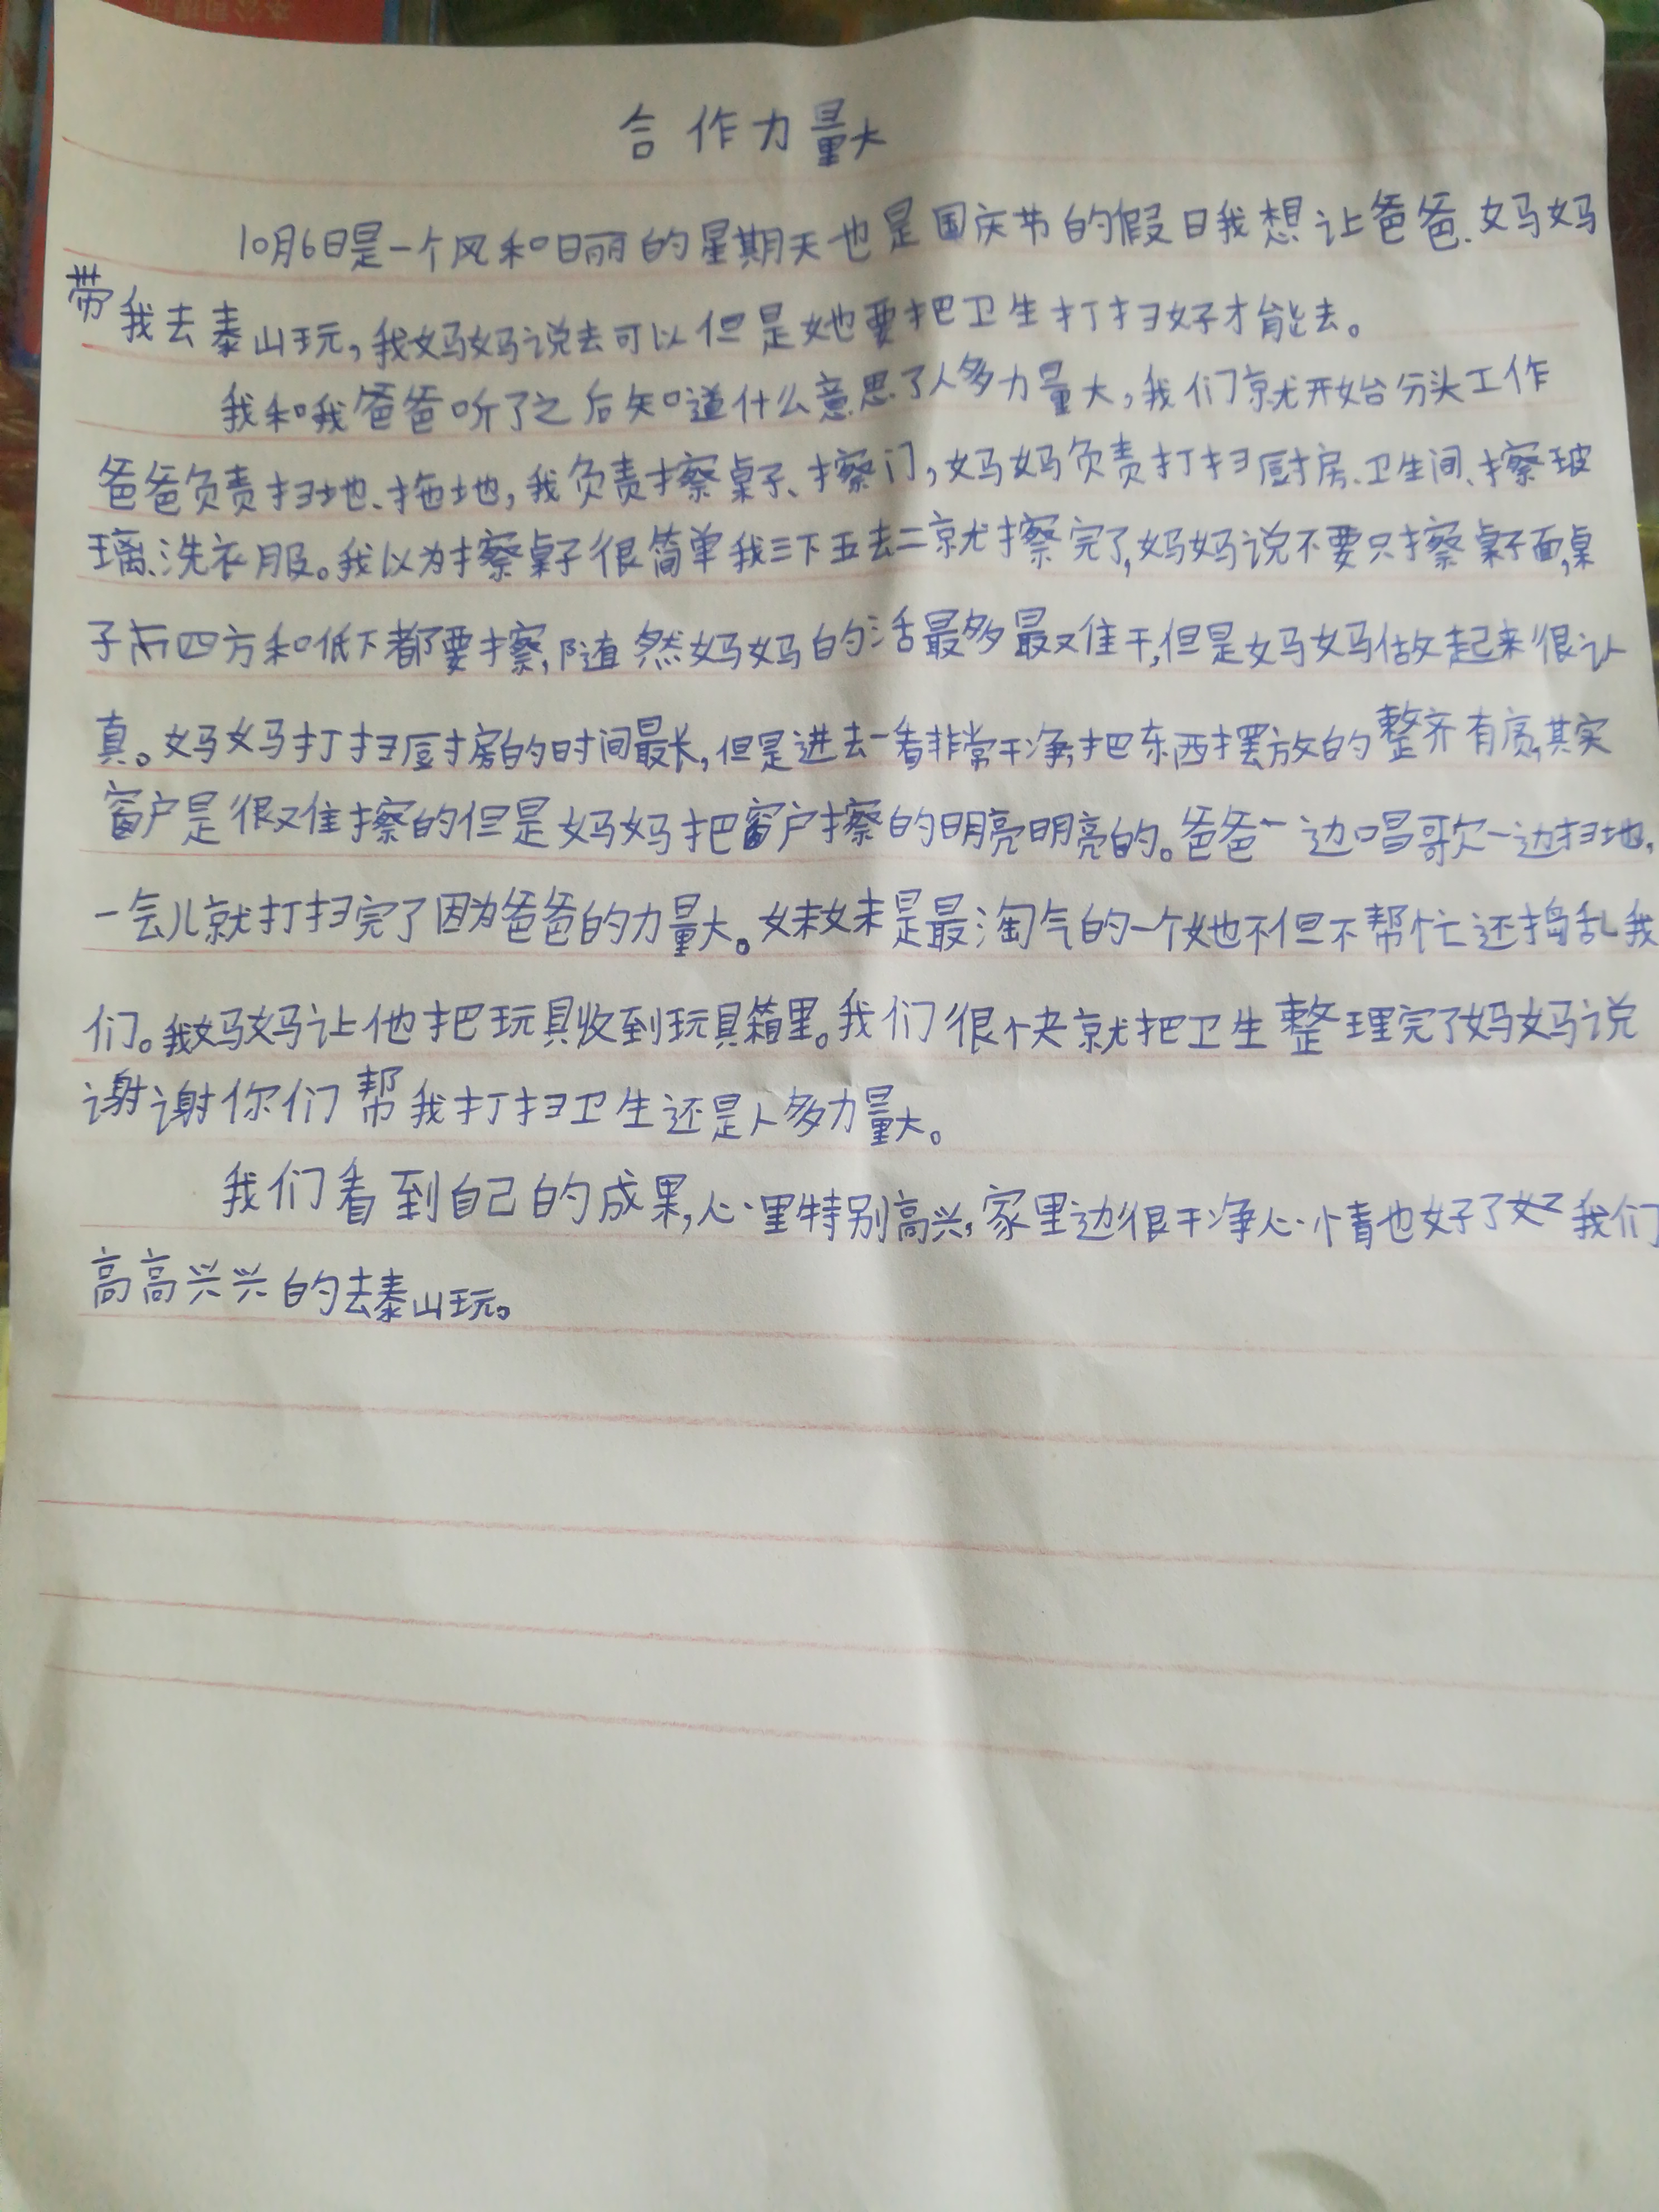 合作力量大
10月6日是一个风和日丽的星期天也是国庆节的假日我想让爸爸、妈妈
带我去泰山玩，我妈妈说去可以但是她要把卫生打扫好才能去。
我和我爸爸听了之后知道什么意思了人多力量大，我们就开始分头工作
爸爸负责扫地、拖地，我负责擦桌子、擦门，妈妈负责打扫厨房、卫生间、擦玻
璃、洗衣服。我以为擦桌子很简单我三下五去二就擦完了，妈妈说不要只擦桌子面，桌
子四方和低下都要擦，随然妈妈的活最多最难干，但是妈妈做起来很认
真。妈妈打扫厨房的时间最长，但是进去一看非常干净，把东西摆放的整齐有序，其实
窗户是很难擦的但是妈妈把窗户擦的明亮明亮的。爸爸一边唱歌一边扫地，
一会儿就打扫完了因为爸爸的力量大。妹妹是最淘气的一个她不但不帮忙还捣乱我
们。我妈妈让他把玩具收到玩具箱里。我们很快就把卫生整理完了妈妈说
谢谢你们帮我打扫卫生还是人多力量大。
我们看到自己的成果，心里特别高兴，家里边很干净心情也好了好我们
高高兴兴的去泰山玩。